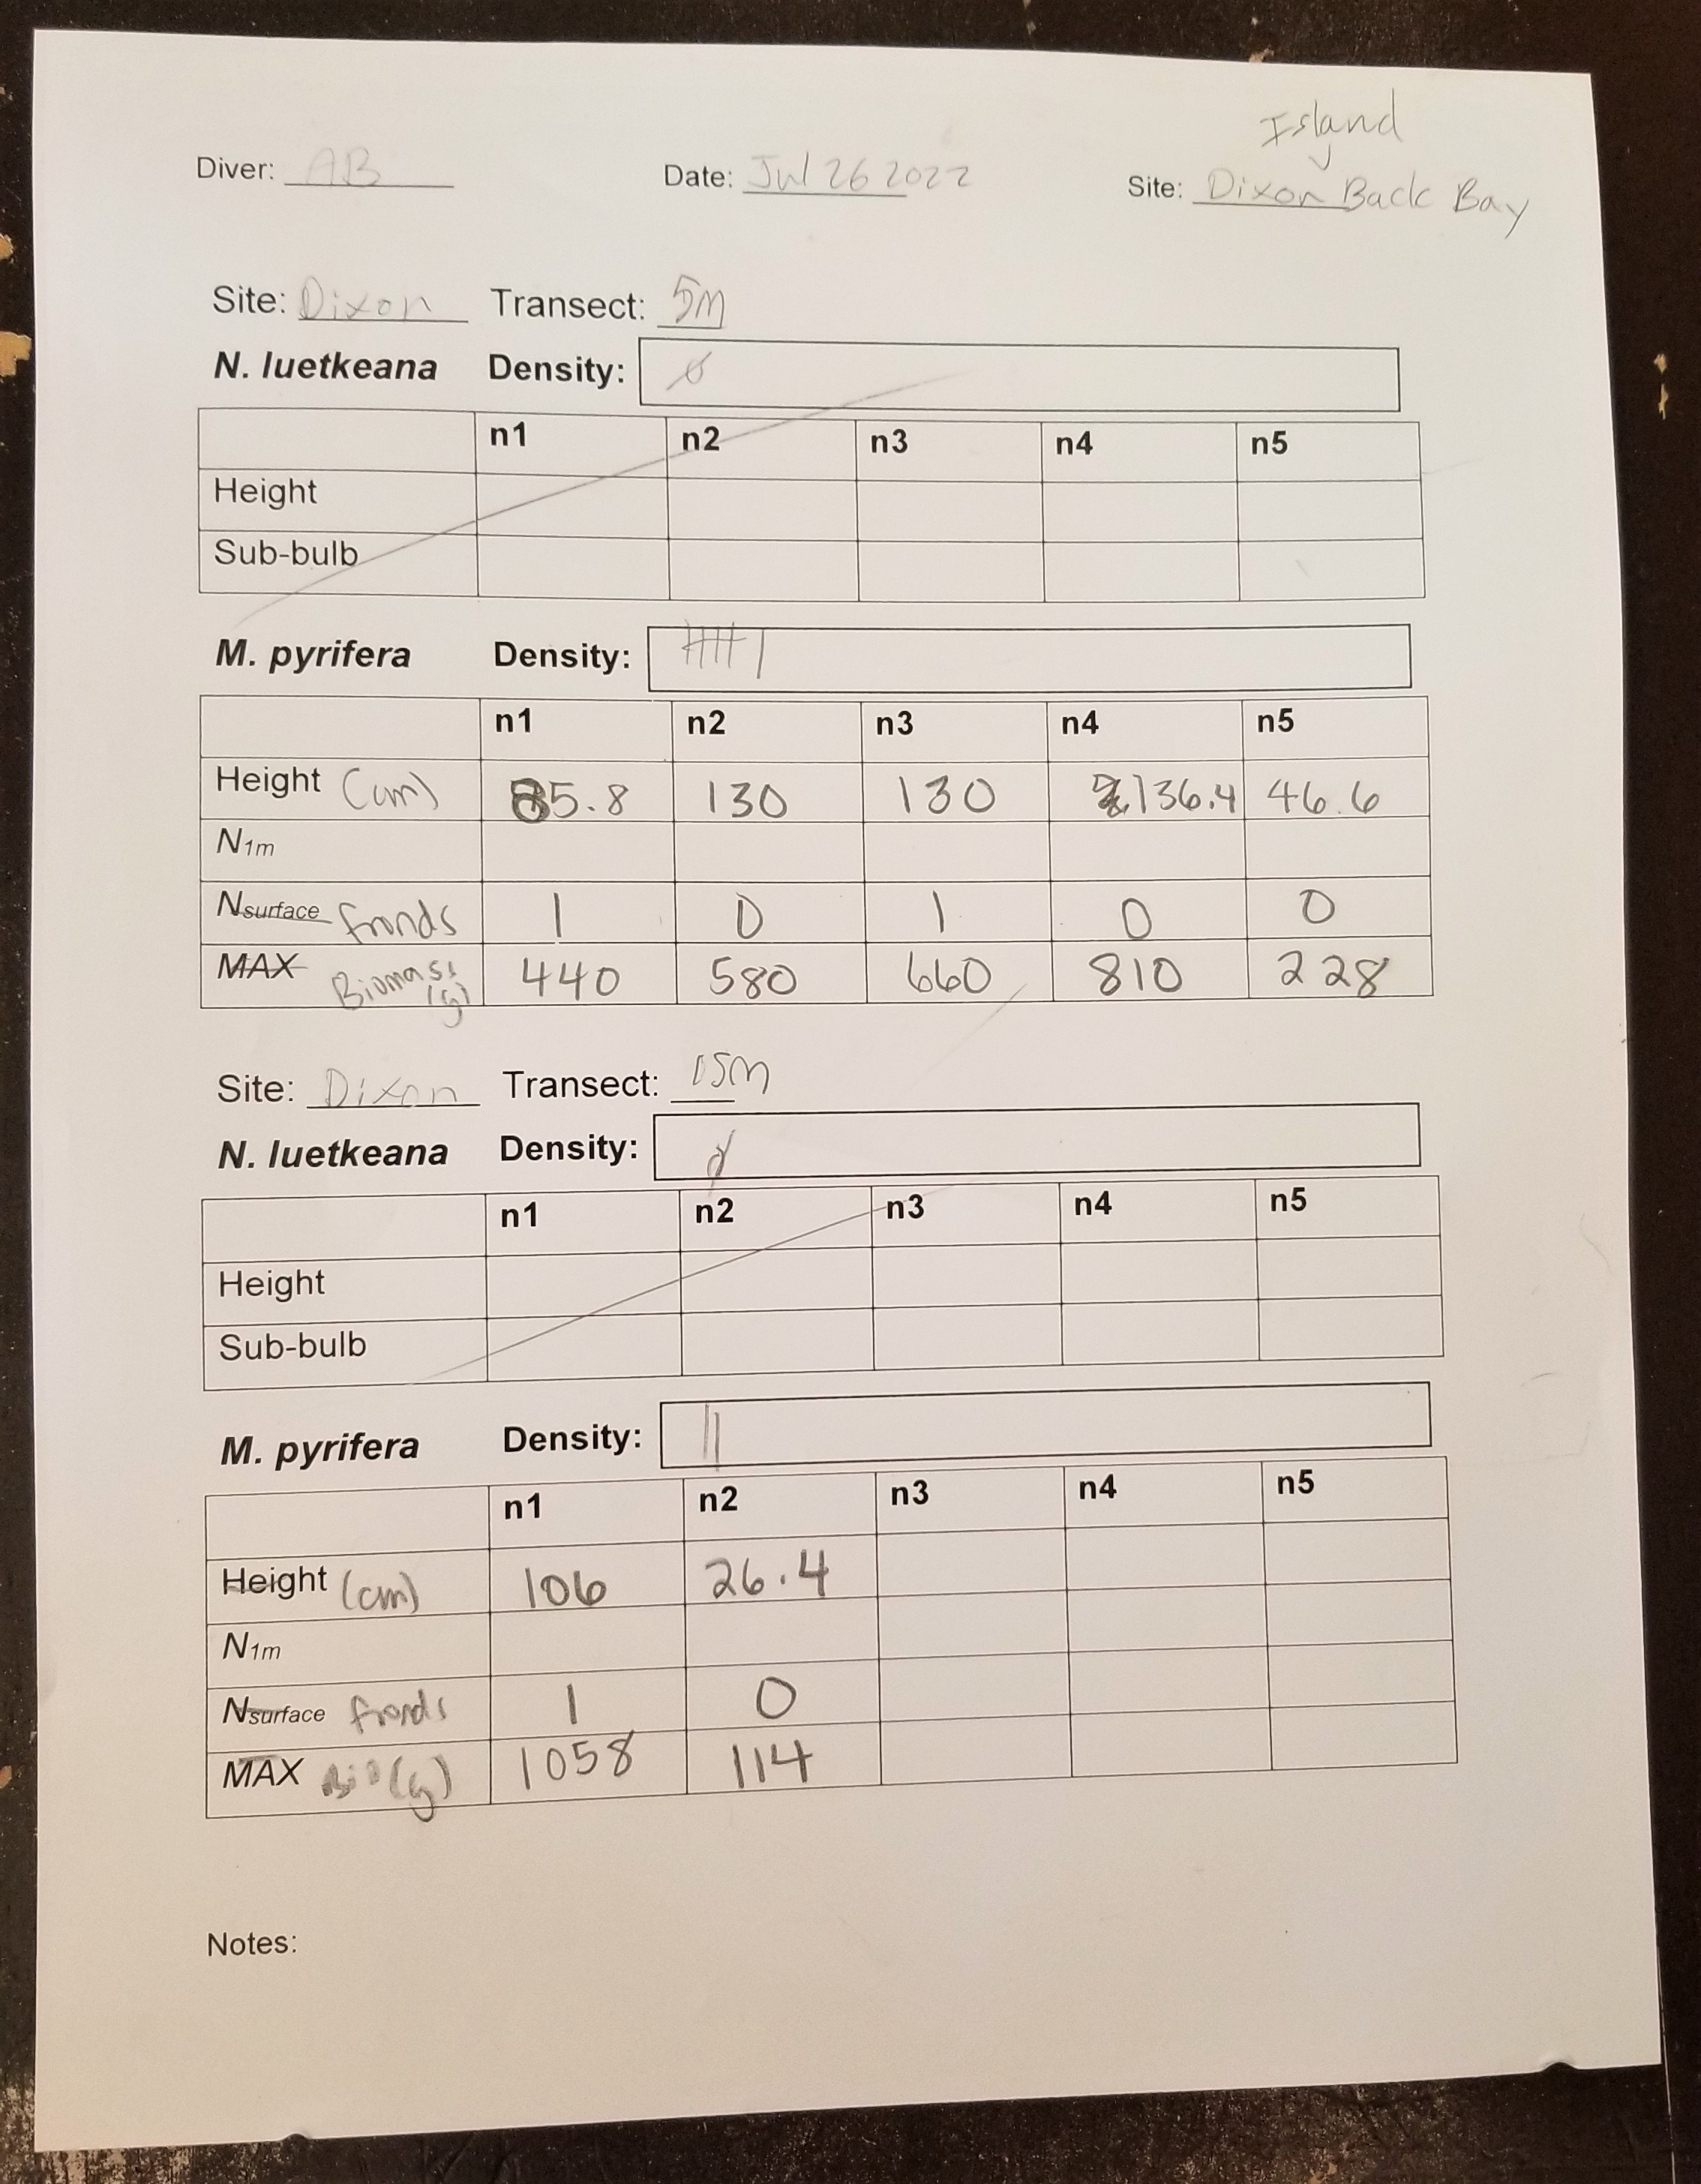 Island
Diver: AB Date: Jul 26 2022 Site: Dixon Back Bay
Site: Dixon Transect: 5m
N. luetkeana Density: ∅
n1 n2 n3 n4 n5
Height
Sub-bulb
M. pyrifera Density: 卌 |
n1 n2 n3 n4 n5
Height (cm) 85.8 130 130 136.4 46.6
N1m
Nsurface fronds 1 0 1 0 0
MAX Biomass (g) 440 580 660 810 228
Site: Dixon Transect: 15m
N. luetkeana Density: ∅
n1 n2 n3 n4 n5
Height
Sub-bulb
M. pyrifera Density: ||
n1 n2 n3 n4 n5
Height (cm) 106 26.4
N1m
Nsurface fronds 1 0
MAX Bio (g) 1058 114
Notes: